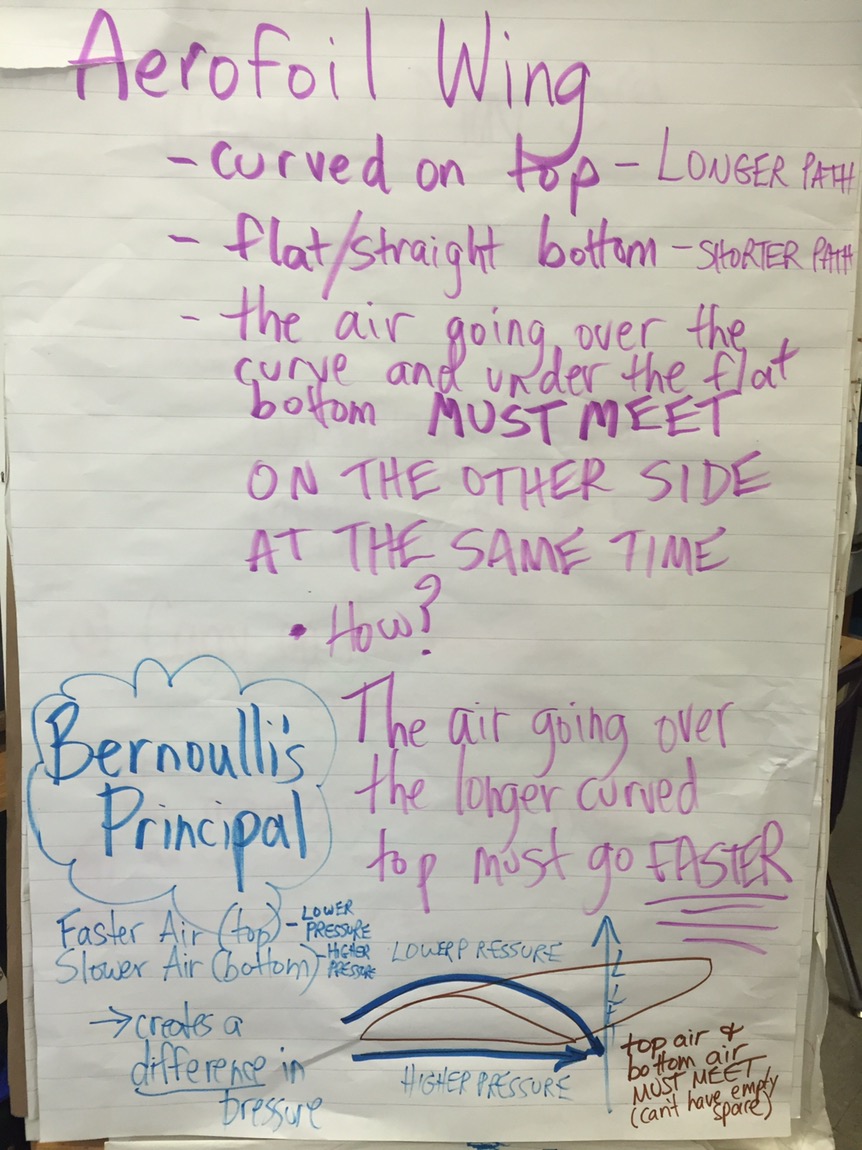 Aerofoil Wing
- curved on top - LONGER PATH
- flat/straight bottom - SHORTER PATH
- the air going over the
curve and under the flat
bottom MUST MEET
ON THE OTHER SIDE
AT THE SAME TIME
• How?
The air going over
the longer curved
top must go FASTER
Bernoulli's
Principal
Faster Air (top) - LOWER PRESSURE
Slower Air (bottom) - HIGHER PRESSURE
→ creates a
difference in
pressure
LOWER PRESSURE
LIFT
HIGHER PRESSURE
top air &
bottom air
MUST MEET
(can't have empty
space)